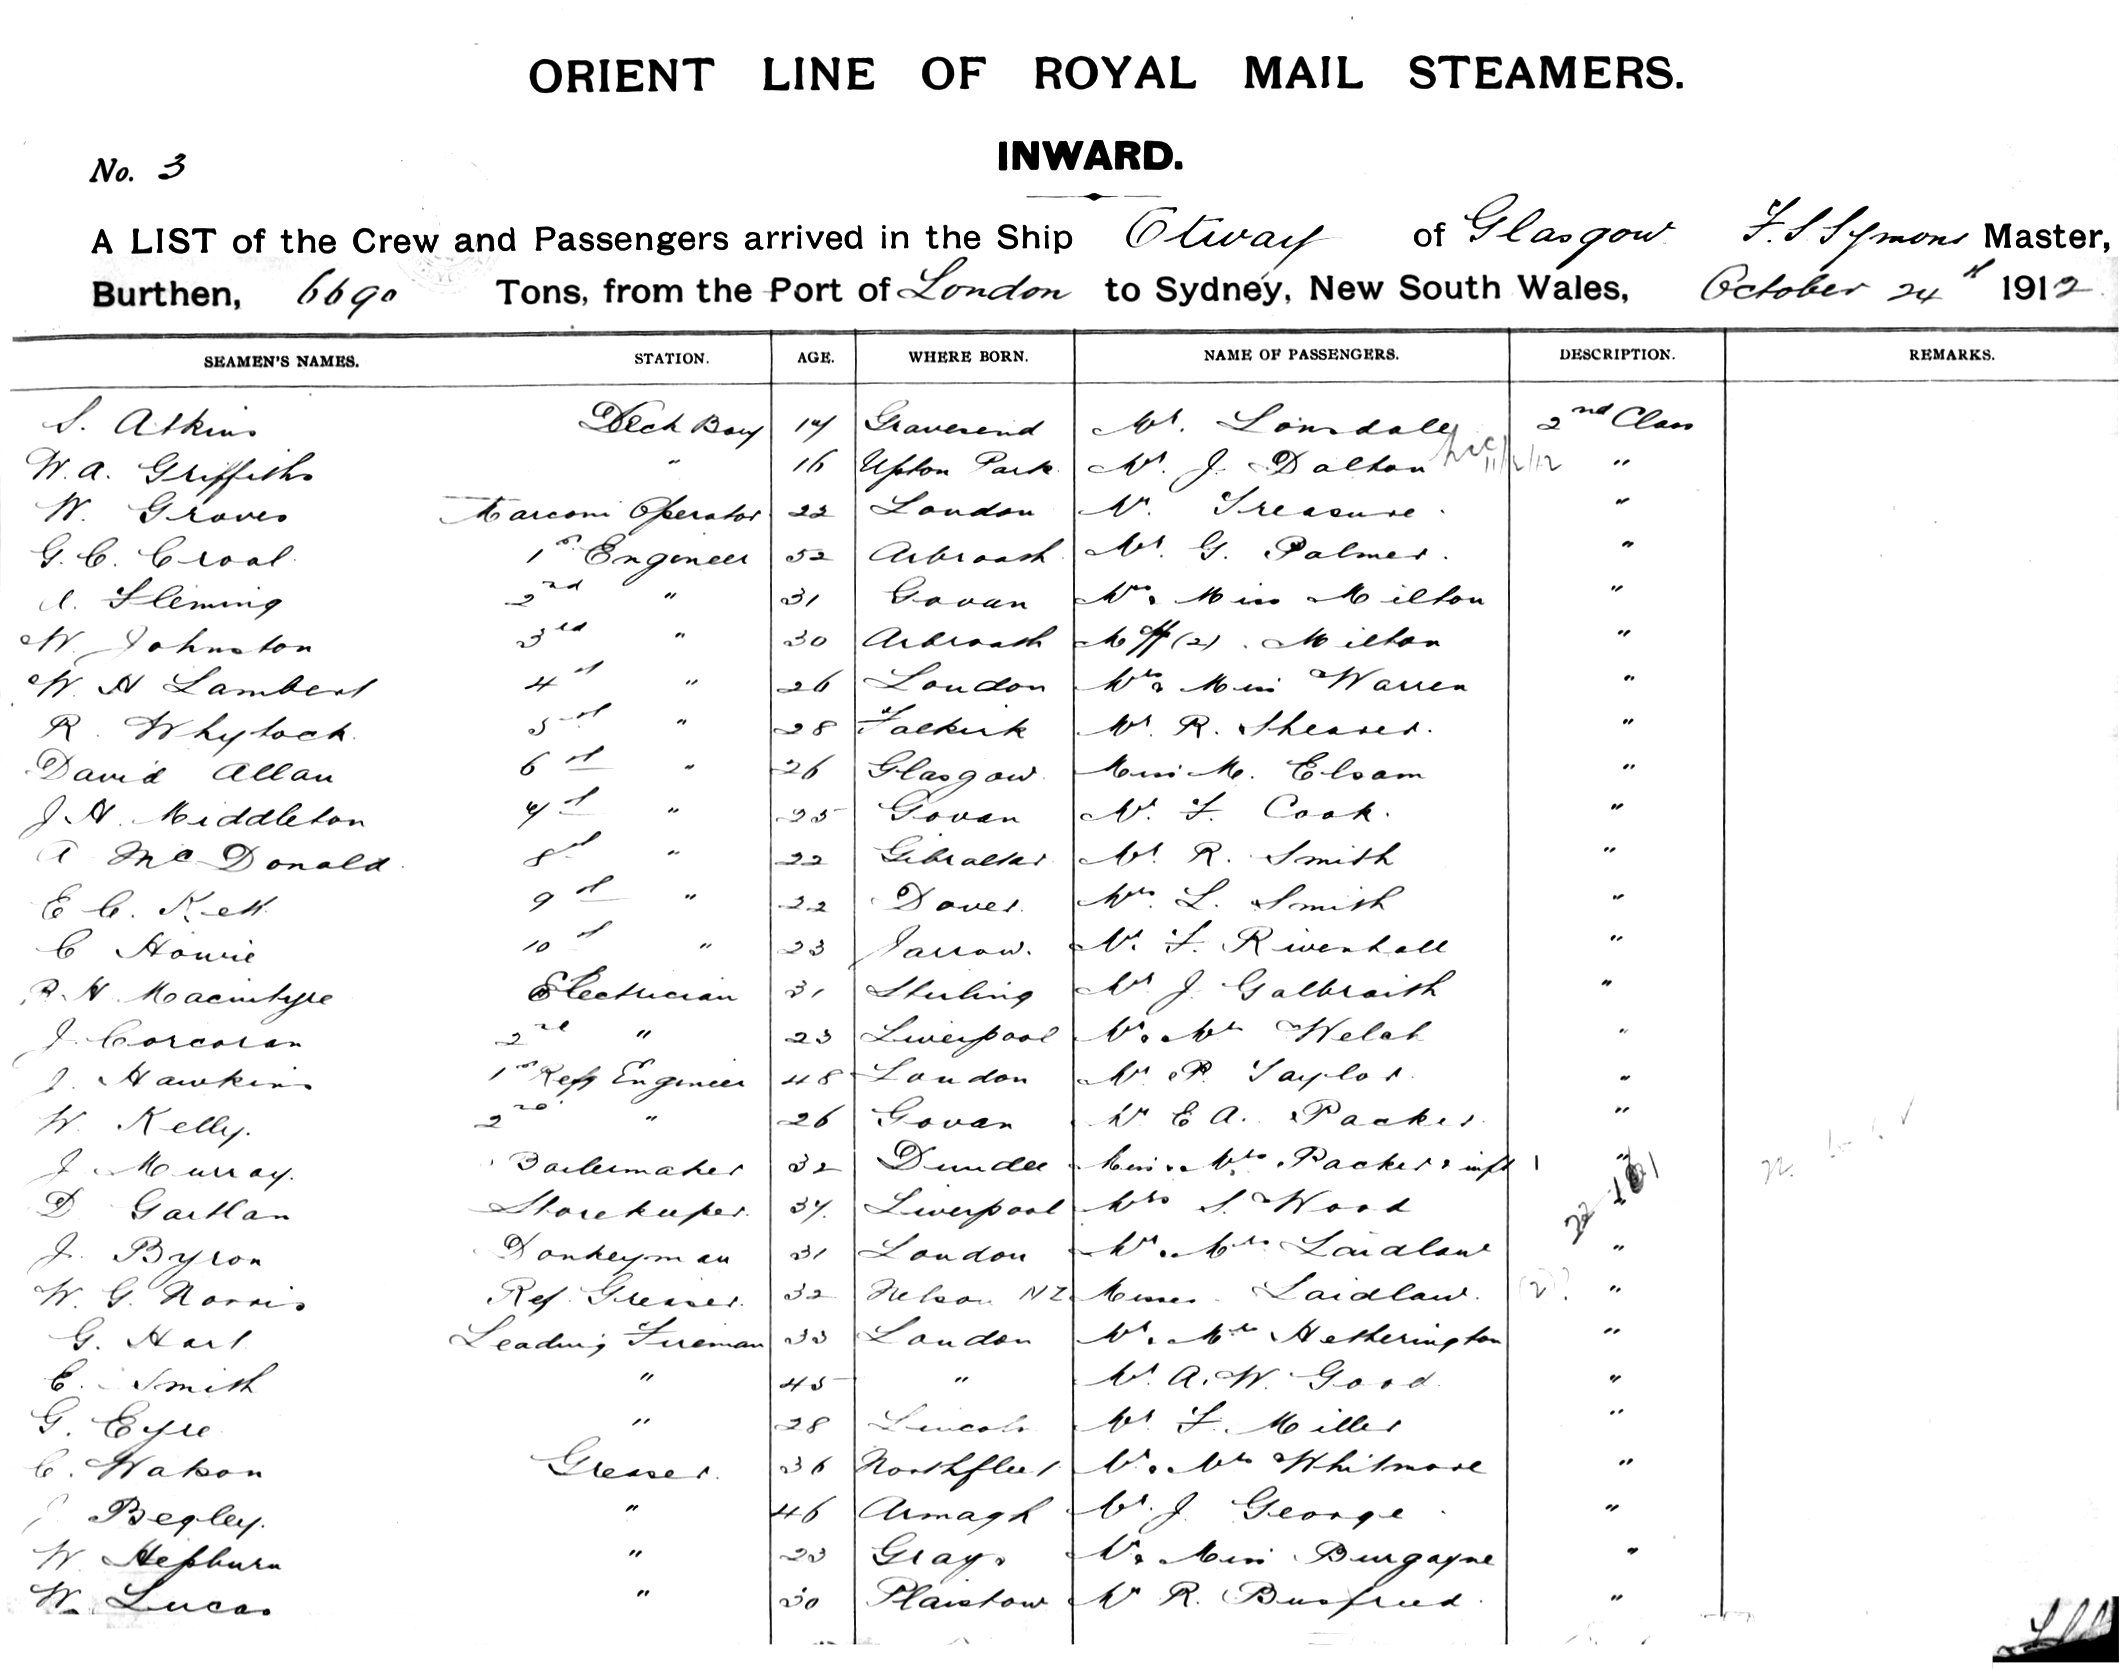 ORIENT LINE OF ROYAL MAIL STEAMERS.
INWARD.
No. 3
A LIST of the Crew and Passengers arrived in the Ship Otway of Glasgow F. S Symons Master,
Burthen, 6690 Tons, from the Port of London to Sydney, New South Wales, October 24th 1912
SEAMEN'S NAMES. STATION. AGE. WHERE BORN. NAME OF PASSENGERS. DESCRIPTION. REMARKS.
S. Atkins Deck Boy 17 Gravesend Mr. Lonsdale 2nd Class
W. A. Griffiths " 16 Upton Park Mr. J. Dalton 11/2/12 "
W. Groves Marconi Operator 22 London Mr. Treasure "
G. C. Croal 1st Engineer 52 Arbroath Mr. G. Palmer "
Fleming 2nd " 31 Govan Mrs & Miss Milton "
W. Johnston 3rd " 30 Arbroath (2) Milton "
W. H Lambert 4th " 26 London Mrs & Miss Warren "
R. Whylock 5th " 28 Falkirk Mr. R. Shearer "
David Allan 6th " 26 Glasgow Miss M. Elsam "
J. H. Middleton 7th " 25 Govan Mr. F. Cook "
A McDonald 8th " 22 Gibraltar Mr. R. Smith "
E C. Kett 9th " 22 Dover Mrs. L. Smith "
C Howie 10th " 23 Jarrow Mr. F. Rivenhall "
R. H. Macintyre Electrician 31 Stirling Mr J. Galbraith "
J. Corcoran 2nd " 23 Liverpool Mr & Mrs Welch "
J. Hawkins 1st Refg Engineer 48 London Mr P. Taylor "
W. Kelly. 2nd " 26 Govan Mr E A. Packer "
J. Murray. Boilermaker 32 Dundee Miss & Mrs Packer & inft 1 "
D Gartlan Storekeeper 37 Liverpool Mrs S. Wood
J. Byron Donkeyman 31 London Mr & Mrs Laidlaw "
W. G. Norris Ref. Greaser 32 Nelson NZ Misses Laidlaw (2)? "
G. Hart Leading Fireman 33 London Mr & Mrs Hetherington "
E. Smith " 45 " Mr. A. W. Good "
G. Eyre " 28 Lincoln Mr F. Miller "
C. Watson Greaser 36 Northfleet Mr & Mrs Whitmore "
Begley. " 46 Armagh Mr. J. George "
W Hepburn " 23 Grays Mr & Miss Burgoyne "
W. Lucas " 30 Plaistow Mr R. "